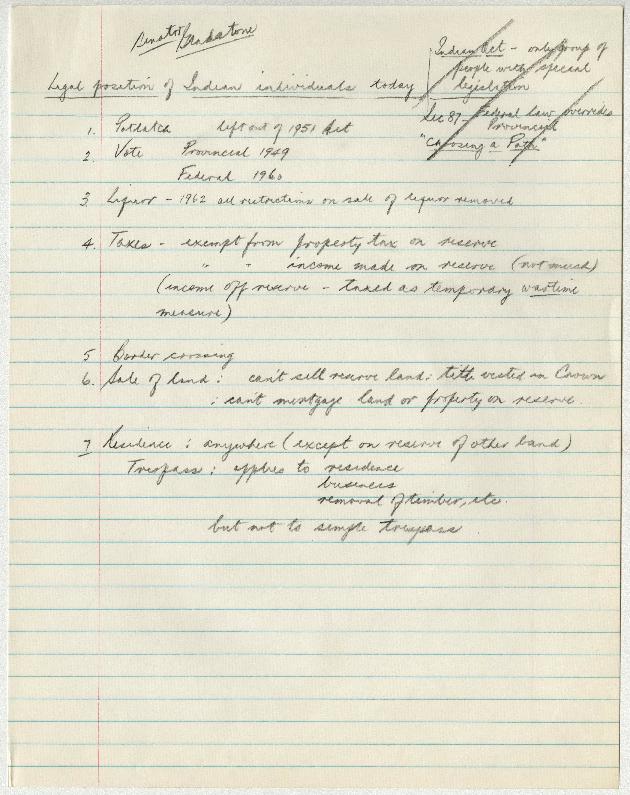 Senator Gladstone
Indian Act - only group of
people with special
legislation
Legal position of Indian individuals today
Sec 87 - Federal law overrides
Provincial
"Choosing a Path"
1. Potlatch left out of 1951 Act
2. Vote Provincial 1949
Federal 1960
3 Liquor - 1962 all restrictions on sale of liquor removed
4. Taxes - exempt from property tax on reserve
" - income made on reserve (not much)
(income off reserve - taxed as temporary wartime
measure)
5 Border crossing
6. Sale of land : can't sell reserve land : title vested in Crown
: can't mortgage land or property on reserve.
7 Residence : anywhere (except on reserve of other band)
Trespass : applies to residence
business
removal of timber, etc.
but not to simple trespass